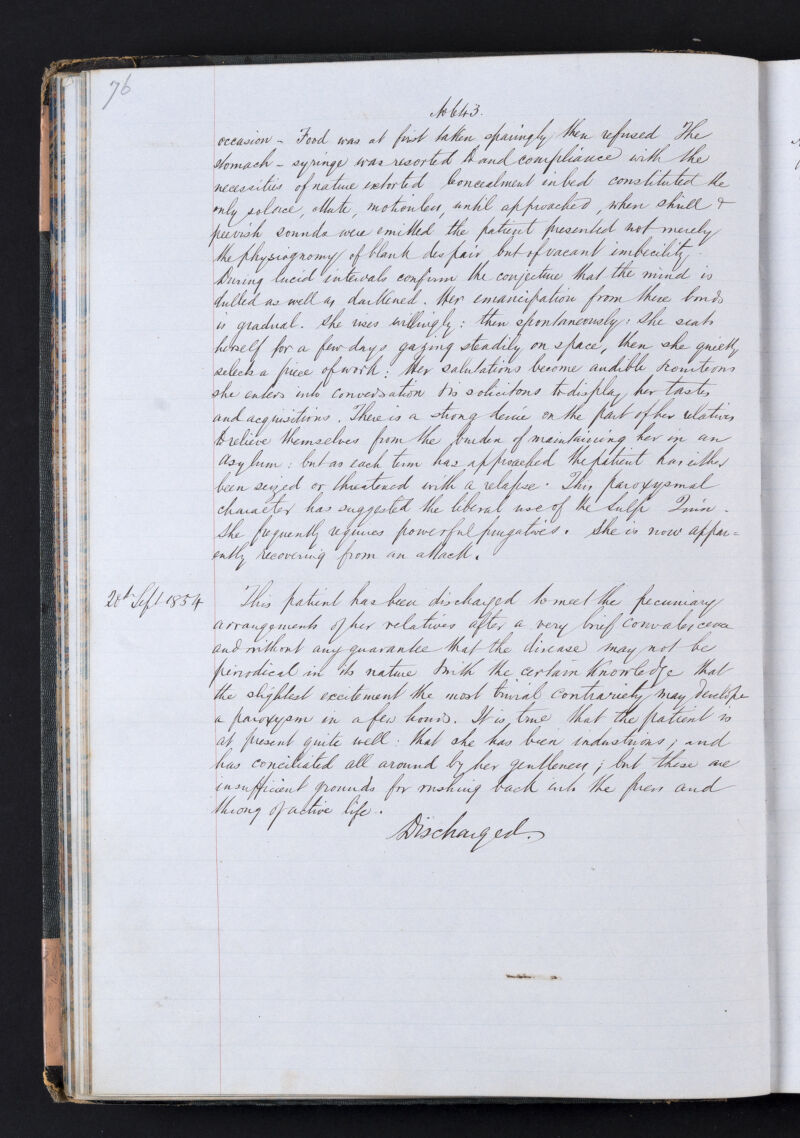 76
No 643.
occasion – Food was at first taken sparingly then refused The
stomach – syringe was resorted to and compliance with the
necessities of nature extorted Concealment in bed constituted the
only solace, Mute, motionless, until approached, when shrill &
peevish sounds were emitted the patient presented not merely
the physiognomy of blank despair but of vacant imbecility.
During lucid intervals confirm the conjecture that the mind is
dulled as well as darkened. Her emancipation from these bonds
is gradual. She rises willingly: then spontaneously: She seats
herself for a few days gazing steadily on space, then she quietly
selects a piece of work: Her salutations become audible
she enters into conversation & is solicitous to display her tastes
and acquisitions. There is a strong desire on the part of her relatives
to relieve themselves from the burden of maintaining her in an
asylum: but as each term has approached the patient has either
been seized or threatened with a relapse. This paroxysmal
character has suggested the liberal use of the Sulph Quin.
She frequently requires powerful purgatives. She is now appar=
ently recovering from an attack.
20th Sept 1854 This patient has been discharged to meet the pecuniary
arrangements of her relatives after a very brief convalescence
and without any guarantee that the disease may not be
periodical in its nature & with the certain knowledge that
the slightest excitement the most trivial contrariety may develope
a paroxysm in a few hours. It is true that the patient is
at present quite well: that she has been industrious; and
has conciliated all around by her gentleness; but these are
insufficient grounds for rushing back into the press and
throng of active life.
Discharged.